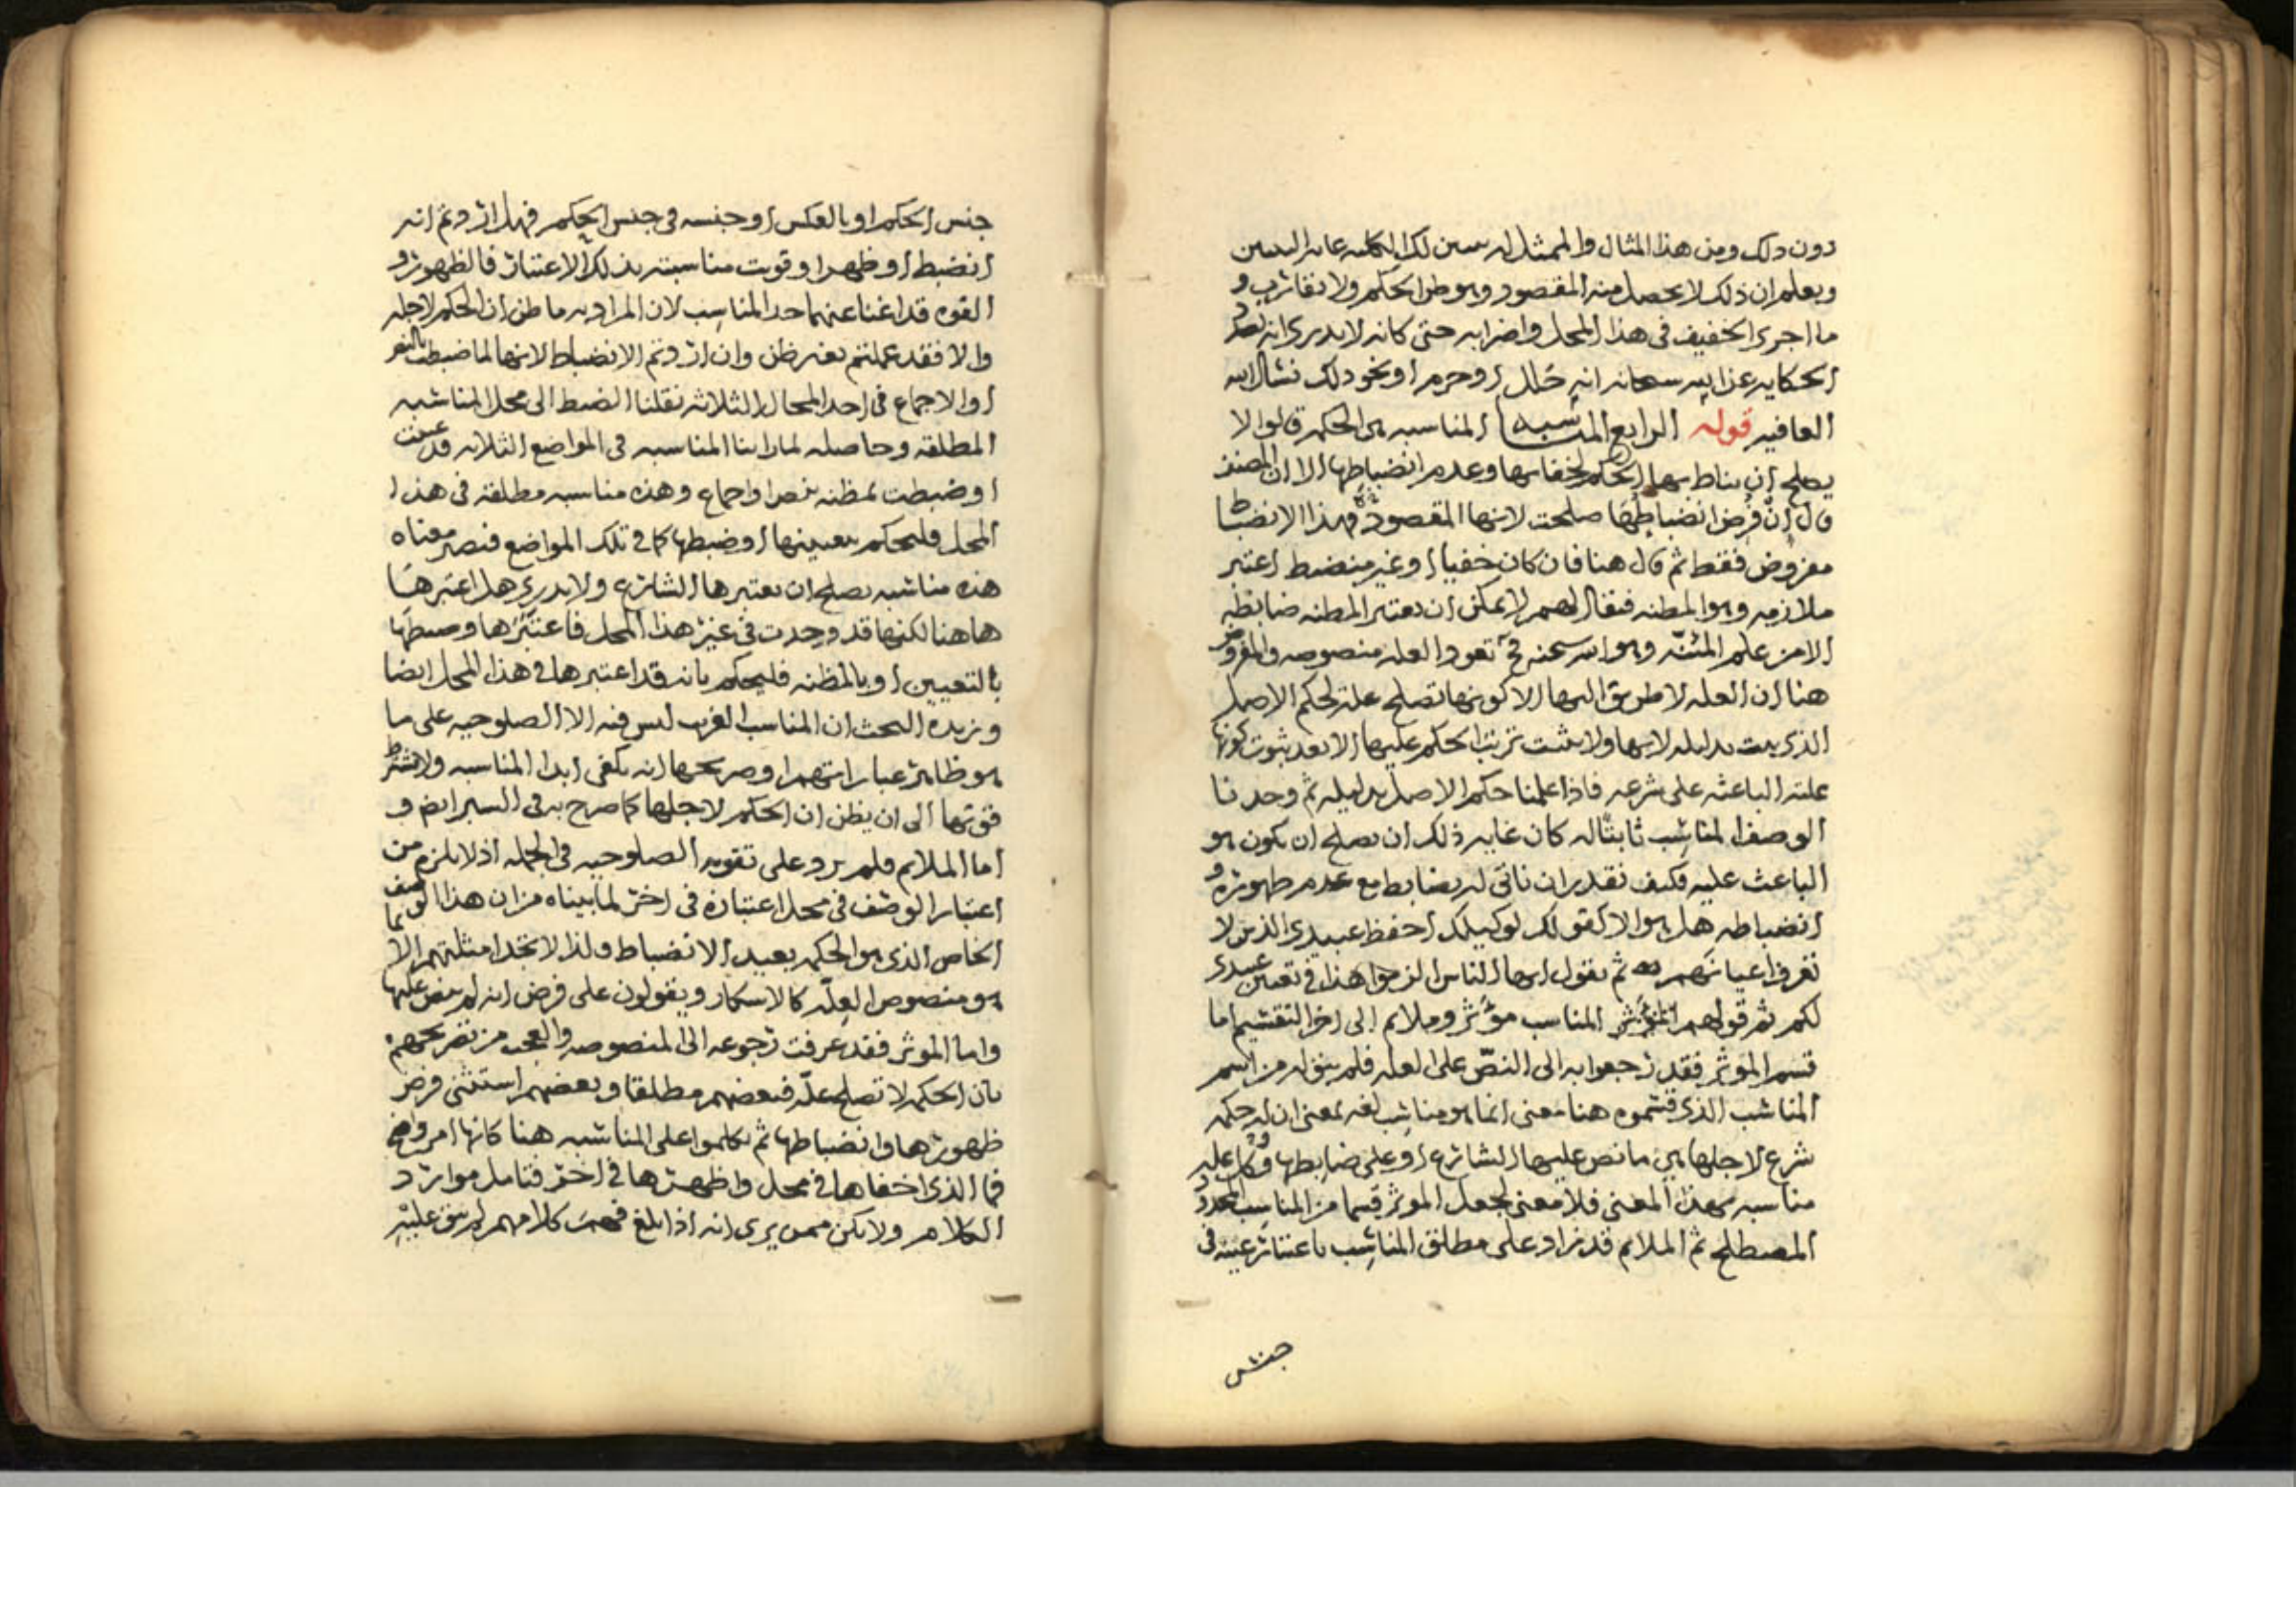 دون ذلك ومن هذا المثال والممثل له
ويعلم ان ذلك لا يحصل منه المقصود وهو ظن الحكم ولا يقارب و
ما اجرى الخفيف في هذا المحل واضرابه حتى كانه لا يدري انه بصدد
الحكاية عن الله سبحانه انه حلل او حرم او نحو ذلك نسال الله
العافيه قوله الرابع المناسبه المناسبه هى الحكمه قالوا لا
يصلح ان يناط بها الحكم لخفائها وعدم انضباطها الا ان المصنف
قال ان فرض انضباطها صلحت لانها المقصوده فهذا الانضباط
مفروض فقط ثم قال هنا فان كان خفيا او غير منضبط اعتبر
ملازمه وهو المظنه فيقال لهم لا يمكن ان يعتبر المظنه ضابطه
الا من علم المئنّه وهو الله سبحنه فح تعود العله منصوصه والمفروض
هنا ان العله لا طريق اليها الا كونها تصلح علة لحكم الاصل
الذي يثبت بدليله لا بها ولا يثبت ترتب الحكم عليها الا بعد ثبوت كونها
علته الباعثه على شرعه فاذا علمنا حكم الاصل بدليله ثم وجدنا
الوصف المناسب ثابتا له كان غايه ذلك ان يصلح ان يكون هو
الباعث عليه فكيف نقدر ان ناتي له بضابط مع عدم ظهوره و
انضباطه هل هو الا كقولك لوكيلك احفظ عبيدي الذين لا
تعرف اعيانهم ثم يقول ايها الناس الزموا هذا في تعيين عبيدي
لكم ثم قولهم المناسب مؤثر وملائم الى اخر التقسيم اما
قسم الموثر فقد رجعوا به الى النصّ على العله فلم يبق له من اسم
المناسب الذي قسموه هنا معنى انما هو مناسب لغه بمعنى ان له حكمه
شرع لاجلها هي ما نص عليها الشارع او على ضابطها وكل عليه
مناسبه بهذا المعنى فلا معنى لجعل الموثر قسما من المناسب المحدود
المصطلح ثم الملائم قد زاد على مطلق المناسب باعتبار عينه في
جنس
جنس الحكم او بالعكس او جنسه في جنس الحكم فهل اردتم انه
انضبط او ظهر او قويت مناسبته بذلك الاعتبار فالظهور و
القوه قد اغنا عنهما حد المناسب لان المراد به ما ظن ان الحكم لاجله
والا فقد عملتم بغير ظن وان اردتم الانضباط لانها لما ضبطت بالنص
او الاجماع في احد المحال الثلاثه نقلنا الضبط الى محل المناسبه
المطلقه وحاصله لما راينا المناسبه في المواضع الثلاثه قد عينت
او ضبطت بمظنه بنص او اجماع وهذه مناسبه مطلقه في هذا
المحل فليحكم بتعيينها او ضبطها كما في تلك المواضع فنصير معناه
هذه مناسبه يصلح ان يعتبرها الشارع ولا يدري هل اعتبرها
هاهنا لكنها قد وجدت في غير هذا المحل فاعتبرها وضبطها
بالتعيين او بالمظنه فليحكم بانه قد اعتبرها في هذا المحل ايضا
وزبدة البحث ان المناسب الغريب ليس فيه الا الصلوحيه على ما
هو ظاهر عباراتهم او صريحها انه يكفي ابدا المناسبه ولا يشترط
قوتها الى ان يظن ان الحكم لاجلها كما صرح به في السبر ايضا و
اما الملائم فلم يزد على تقويه الصلوحيه في الجمله اذ لا يلزم من
اعتبار الوصف في محل اعتباره في اخر لما بيناه من ان هذا الوصف
الخاص الذي هو الحكمه بعيد الانضباط ولذا لا تجد امثلتهم الا
هو منصوص العلّه كالاسكار ويقولون على فرض انه لم ينص عليها
واما الموثر فقد عرفت رجوعه الى المنصوصه والعجب من تصريحهم
بان الحكمه لا تصلح علّة فبعضهم مطلقا وبعضهم استثنى فرض
ظهورها وانضباطها ثم تكلموا على المناسبه هنا كانها امر واضح
فما الذي اخفاها في محل واظهرها في اخر فتامل موارد
الكلام ولا تكن ممن يرى انه اذا بلغ فهم كلامهم لم يبق عليه